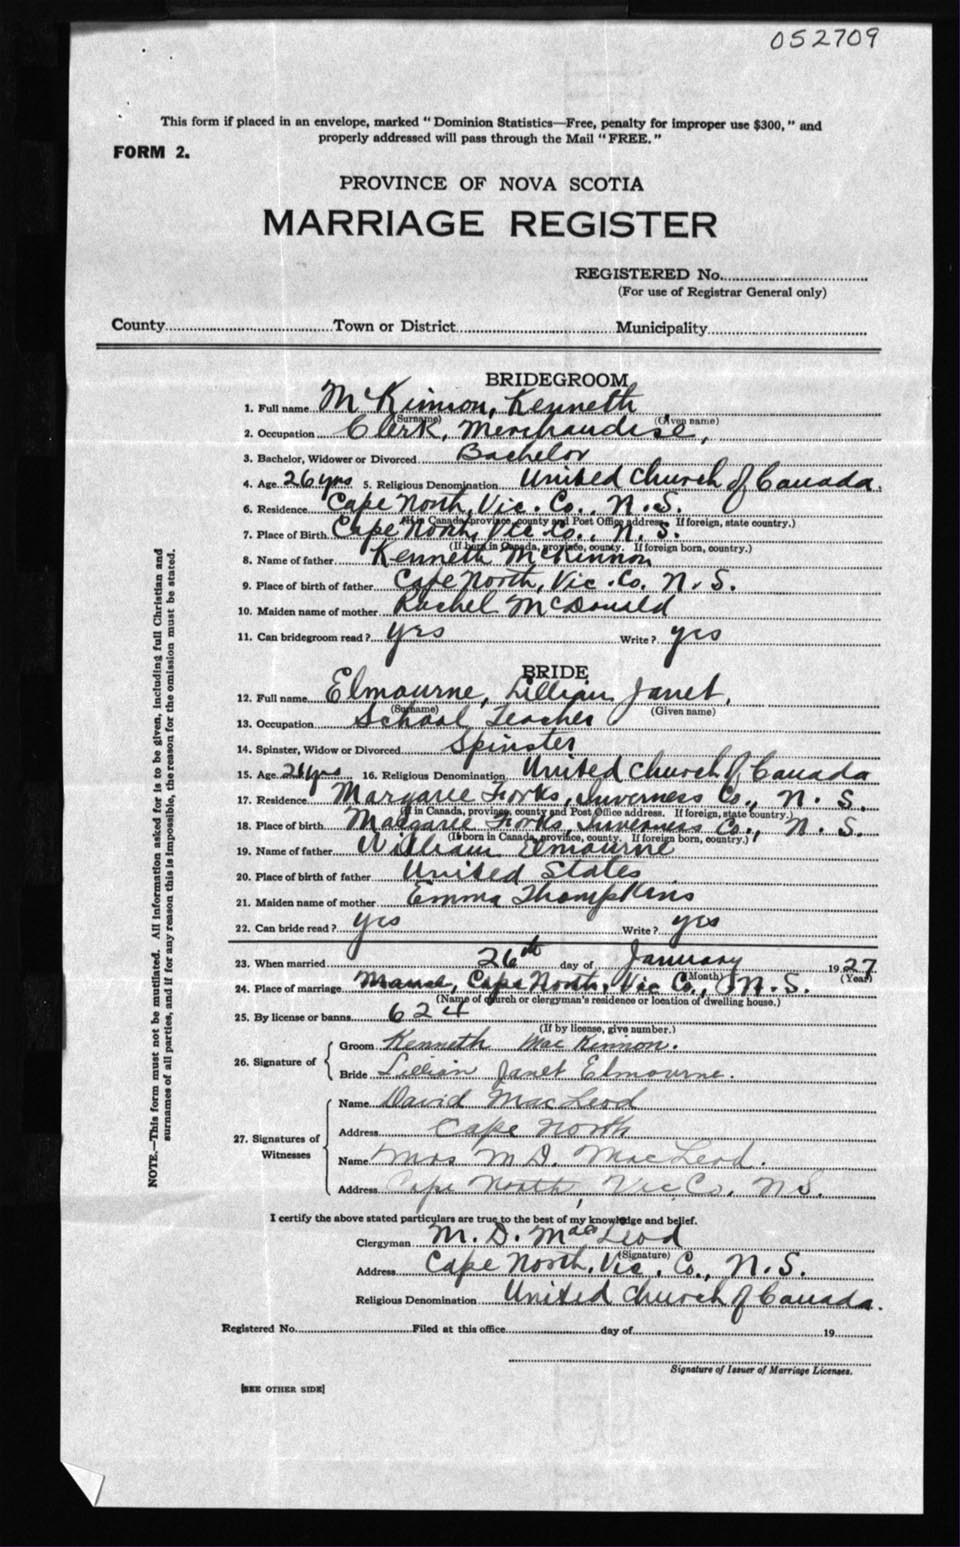 052709
This form if placed in an envelope, marked "Dominion Statistics—Free, penalty for improper use $300," and
properly addressed will pass through the Mail "FREE."
FORM 2.
PROVINCE OF NOVA SCOTIA
MARRIAGE REGISTER
REGISTERED No.
(For use of Registrar General only)
County Town or District Municipality
BRIDEGROOM
1. Full name McKinnon, Kenneth
(Surname) (Given name)
2. Occupation Clerk, Merchandise,
3. Bachelor, Widower or Divorced Bachelor
4. Age 26 yrs 5. Religious Denomination United Church of Canada.
6. Residence Cape North, Vic. Co., N.S.
(If in Canada, province, county and Post Office address. If foreign, state country.)
7. Place of Birth Cape North, Vic Co., N.S.
(If born in Canada, province, county. If foreign born, country.)
8. Name of father Kenneth McKinnon
9. Place of birth of father Cape North, Vic. Co. N.S.
10. Maiden name of mother Rachel McDonald
11. Can bridegroom read? yes Write? yes
BRIDE
12. Full name Elmourne, Lillian Janet,
(Surname) (Given name)
13. Occupation School Teacher
14. Spinster, Widow or Divorced Spinster
15. Age 21 yrs 16. Religious Denomination United Church of Canada
17. Residence Margaree Forks, Inverness Co., N.S.
(If in Canada, province, county and Post Office address. If foreign, state country.)
18. Place of birth Margaree Forks, Inverness Co., N.S.
(If born in Canada, province, county. If foreign born, country.)
19. Name of father William Elmourne
20. Place of birth of father United States
21. Maiden name of mother Emma Thompkins
22. Can bride read? yes Write? yes
23. When married 26th day of January 1927
(Month) (Year)
24. Place of marriage Manse, Cape North, Vic Co., N.S.
(Name of church or clergyman's residence or location of dwelling house.)
25. By license or banns 624
(If by license, give number.)
26. Signature of
Groom Kenneth MacKinnon.
Bride Lillian Janet Elmourne.
27. Signatures of Witnesses
Name David MacLeod
Address Cape North
Name Mrs M D. MacLeod.
Address Cape North, Vic Co. N S.
I certify the above stated particulars are true to the best of my knowledge and belief.
Clergyman M. D. MacLeod
(Signature)
Address Cape North, Vic. Co., N.S.
Religious Denomination United Church of Canada.
Registered No. Filed at this office day of 19
Signature of Issuer of Marriage Licenses.
[SEE OTHER SIDE]
NOTE.—This form must not be mutilated. All information asked for is to be given, including full Christian and
surnames of all parties, and if for any reason this is impossible, the reason for the omission must be stated.